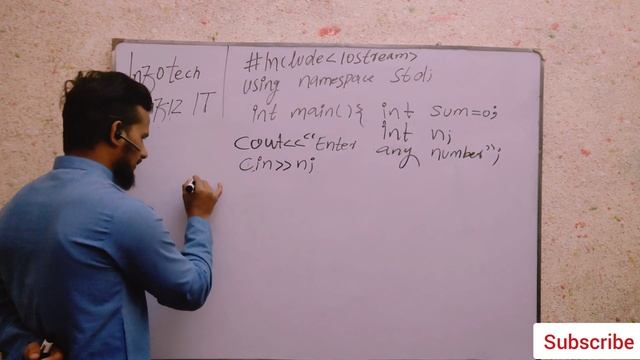 Infotech
IT
#include<iostream>
using namespace std;
int main(){ int sum=0;
int n;
cout<<"Enter any number";
cin>>n;
Subscribe